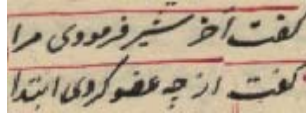 کفت آخر شیر فرمودی مرا
کفت از چه عضو کردی ابتدا